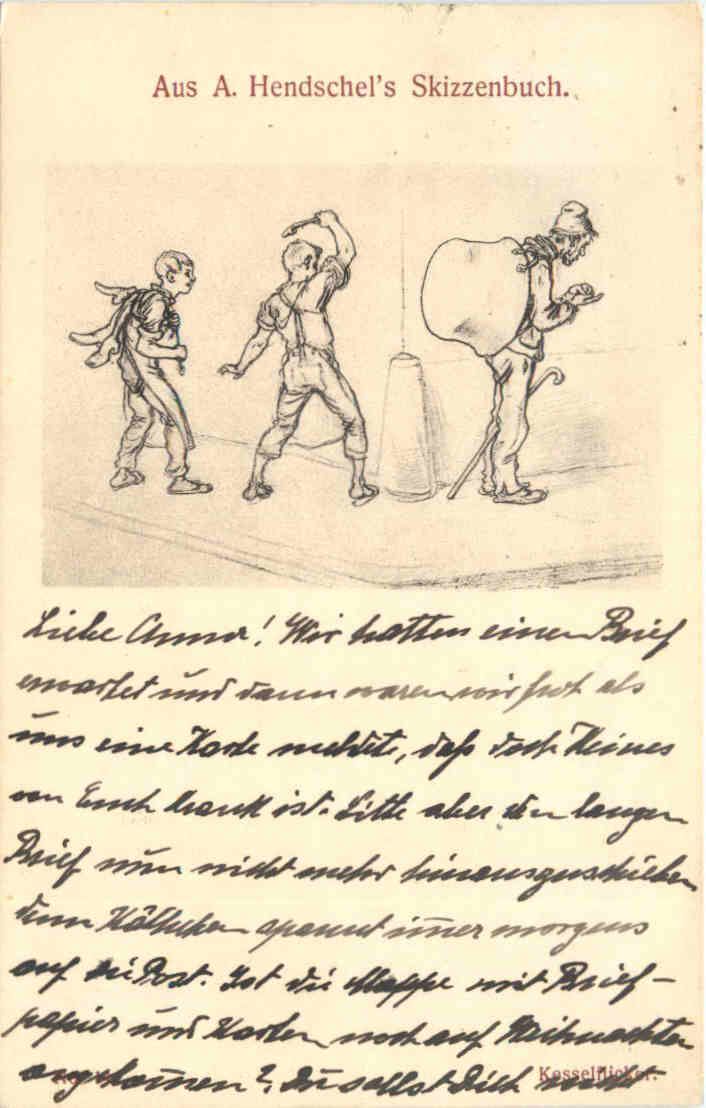 Aus A. Hendschel's Skizzenbuch.
Liebe Anna! Wir hatten einen Brief
erwartet und dann waren wir froh als
uns eine Karte meldete, daß doch Keines
von Euch krank ist. Bitte aber den langen
Brief nun nicht mehr hinausgeschieben
denn spannt im̄er morgens
auf die Post. Ist die Mappe mit Brief-
papier und Karten noch auf Weihnachten
angekom̄en? Du sollst Dich nicht
Kesselflicker.